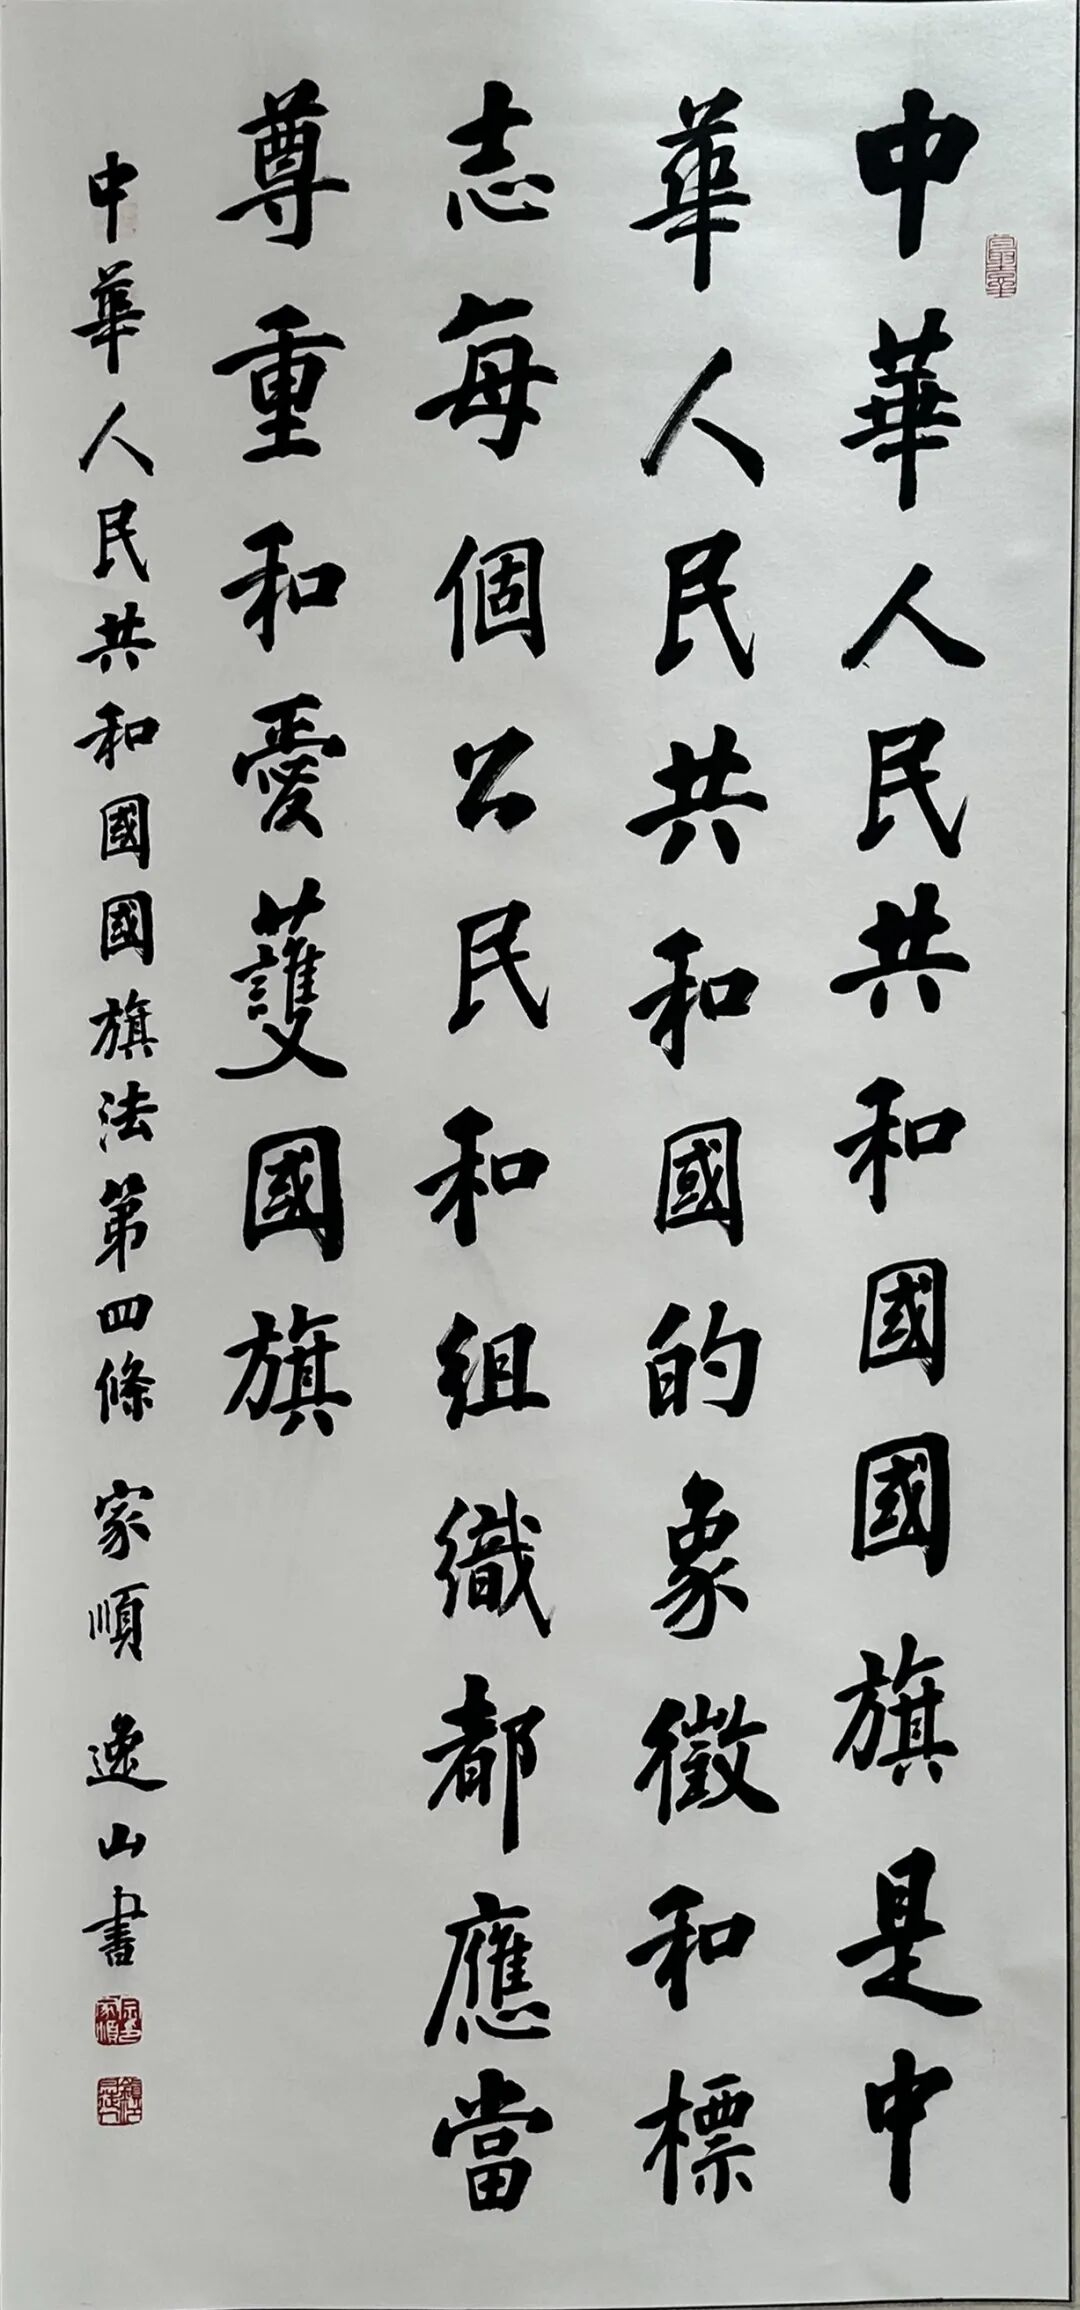 中華人民共和國國旗是中
華人民共和國的象徵和標
志每個公民和組織都應當
尊重和愛護國旗
中華人民共和國國旗法第四條 家順 逸山書